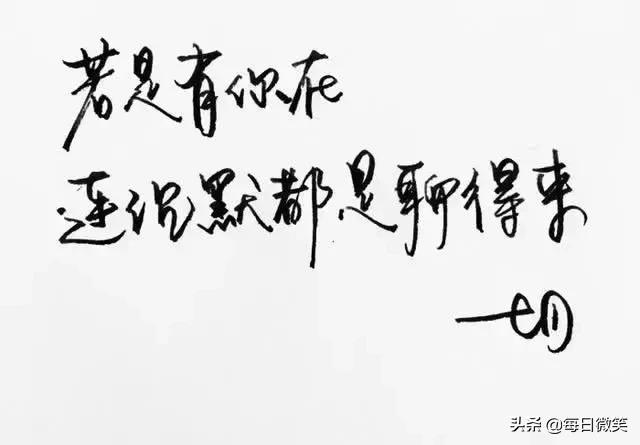 若是有你在
连沉默都是聊得来
一切
头条 @每日微笑